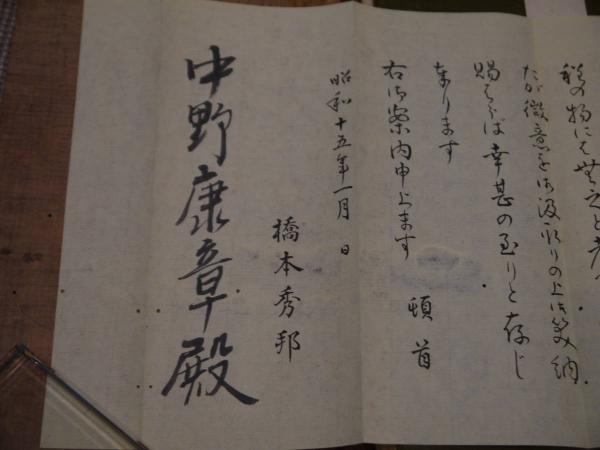 たが微意を御汲取りの上御笑納
賜はらば幸甚の至りと存じ
奉ります
右御案内申上ます
頓首
昭和十五年一月 日
橋本秀邦
中野康章殿